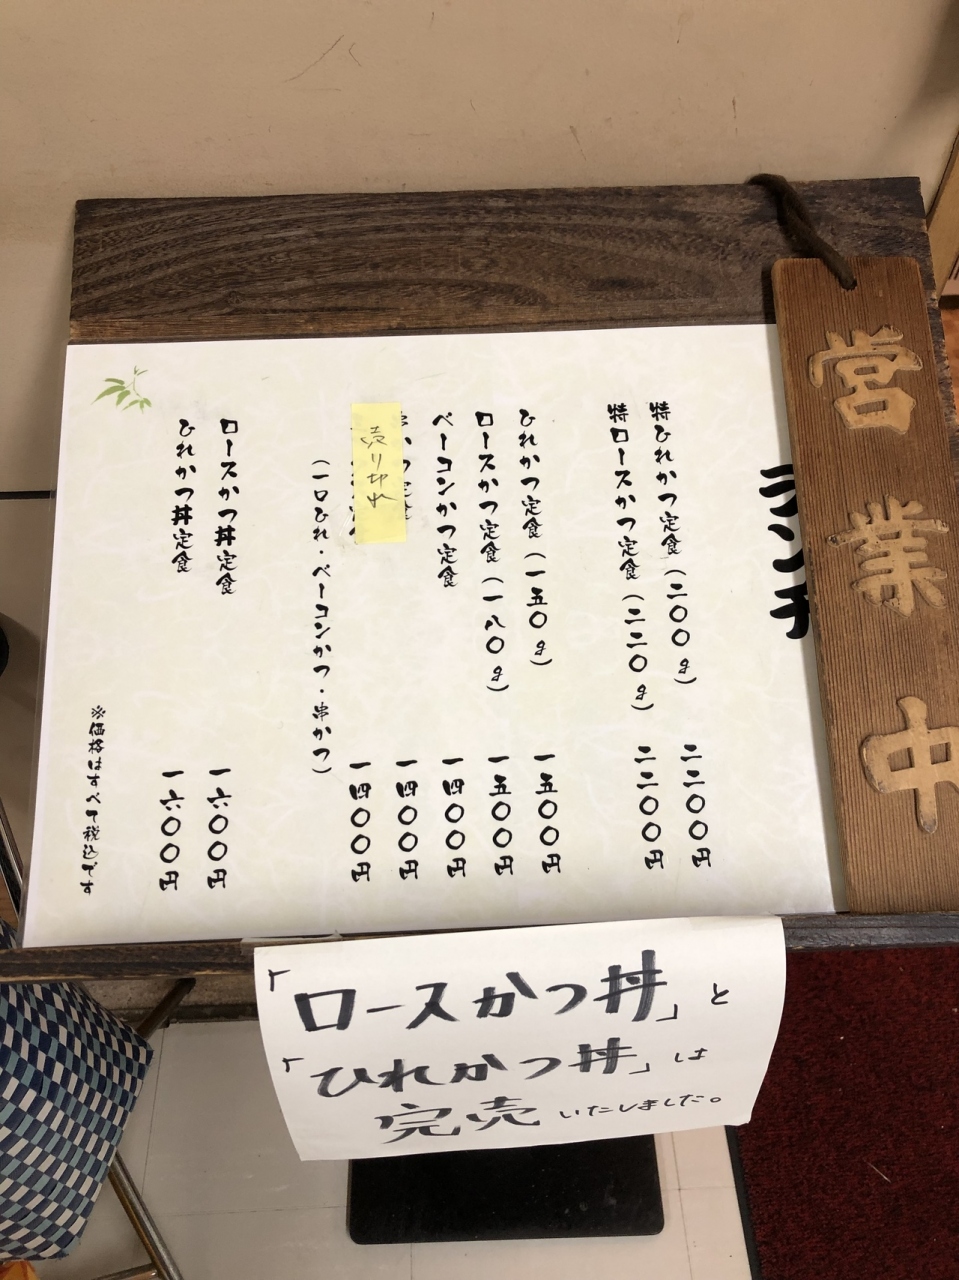 営業中
ランチ
特ひれかつ定食(二〇〇g) 二二〇〇円
特ロースかつ定食(二二〇g) 二二〇〇円
ひれかつ定食(一五〇g) 一五〇〇円
ロースかつ定食(一八〇g) 一五〇〇円
ベーコンかつ定食 一四〇〇円
かつ定食 一四〇〇円
売り切れ
一四〇〇円
(一口ひれ・ベーコンかつ・串かつ)
ロースかつ丼定食 一六〇〇円
ひれかつ丼定食 一六〇〇円
※価格はすべて税込です
「ロースかつ丼」と
「ひれかつ丼」は
完売いたしました。